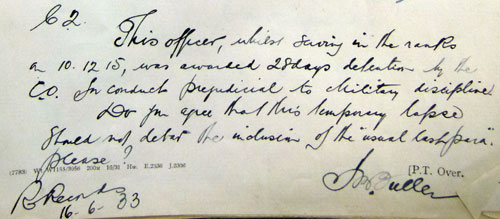 C2.
This officer, whilst serving in the ranks
on 10.12.15, was awarded 28 days detention by the
C.O. for conduct prejudicial to Military discipline
Do you agree that this temporary lapse
should not debar the inclusion of the "usual last para".
please?
[P.T. Over.
16-6-33